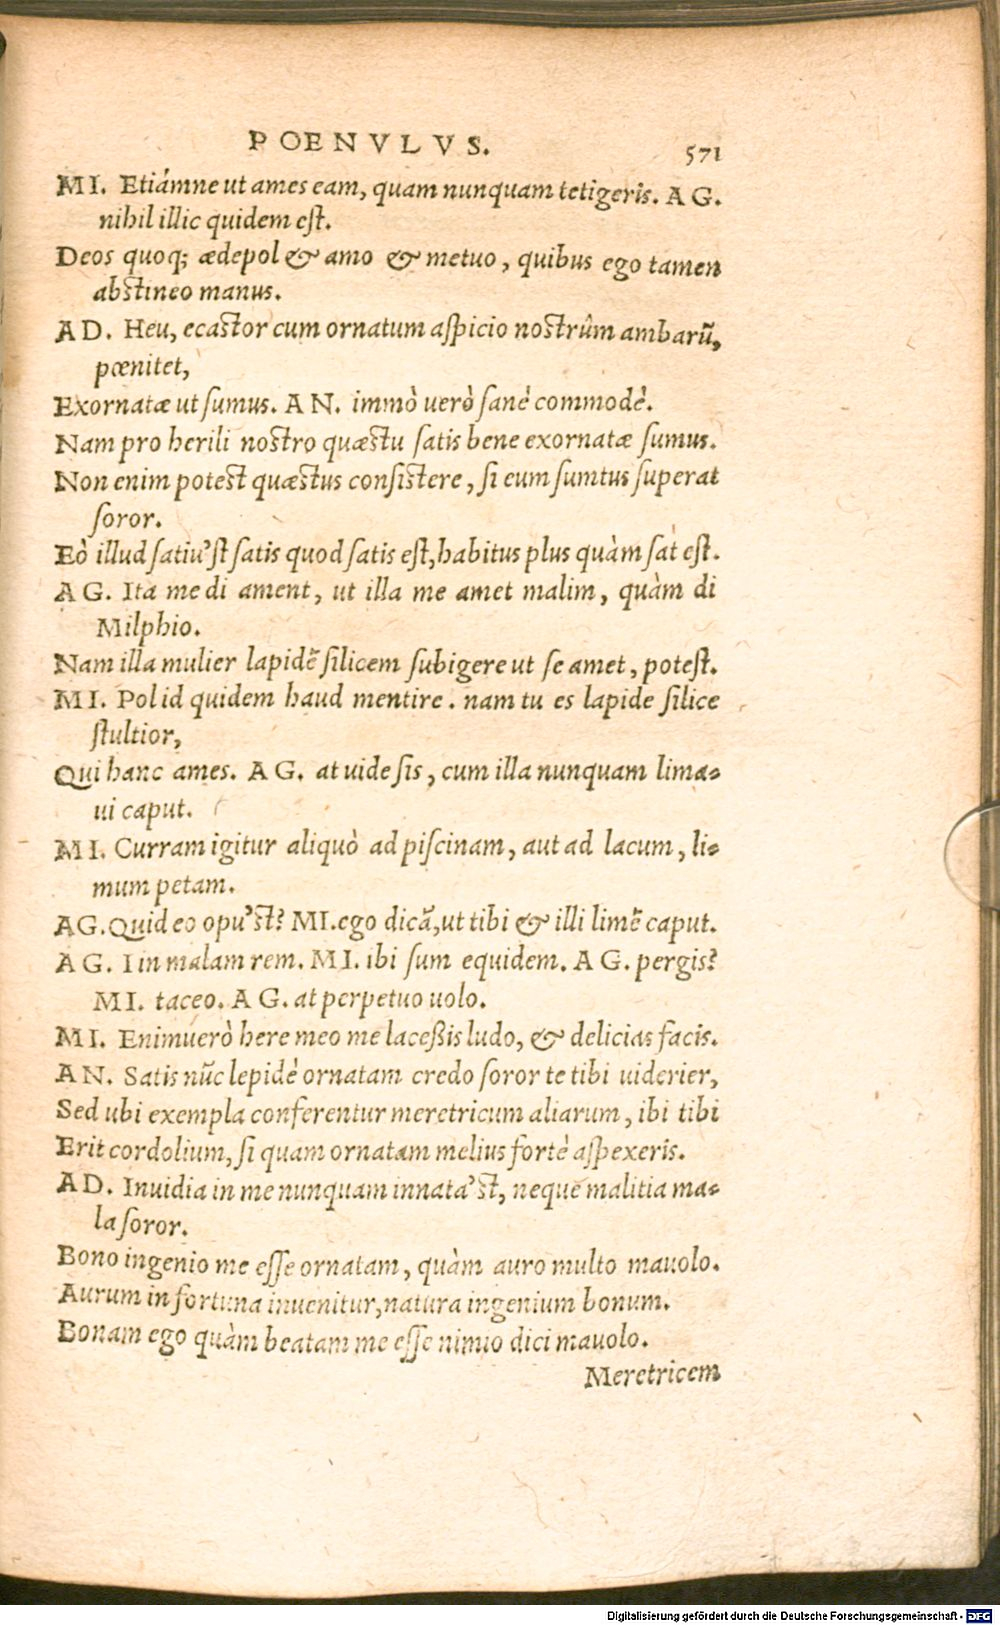 POENVLVS. 571
MI. Etiámne ut ames eam, quam nunquam tetigeris. AG.
nihil illic quidem est.
Deos quoq; ædepol & amo & metuo, quibus ego tamen
abstineo manus.
AD. Heu, ecastor cum ornatum aspicio nostrûm ambarũ,
pœnitet,
Exornatæ ut sumus. AN. immò uerò sanè commodè.
Nam pro herili nostro quæstu satis bene exornatæ sumus.
Non enim potest quæstus consistere, si eum sumtus superat
soror.
Eò illud satiu'st satis quod satis est, habitus plus quàm sat est.
AG. Ita me di ament, ut illa me amet malim, quàm di
Milphio.
Nam illa mulier lapidẽ silicem subigere ut se amet, potest.
MI. Pol id quidem haud mentire. nam tu es lapide silice
stultior,
Qui hanc ames. AG. at uide sis, cum illa nunquam lima-
ui caput.
MI. Curram igitur aliquò ad piscinam, aut ad lacum, li-
mum petam.
AG. Quid eo opu'st? MI. ego dicã, ut tibi & illi limẽ caput.
AG. I in malam rem. MI. ibi sum equidem. AG. pergis?
MI. taceo. AG. at perpetuo uolo.
MI. Enimuerò here meo me lacessis ludo, & delicias facis.
AN. Satis nũc lepidè ornatam credo soror te tibi uiderier,
Sed ubi exempla conferentur meretricum aliarum, ibi tibi
Erit cordolium, si quam ornatam melius fortè aspexeris.
AD. Inuidia in me nunquam innata'st, neque malitia ma-
la soror.
Bono ingenio me esse ornatam, quàm auro multo mauolo.
Aurum in fortuna inuenitur, natura ingenium bonum.
Bonam ego quàm beatam me esse nimio dici mauolo.
Meretricem
Digitalisierung gefördert durch die Deutsche Forschungsgemeinschaft - DFG